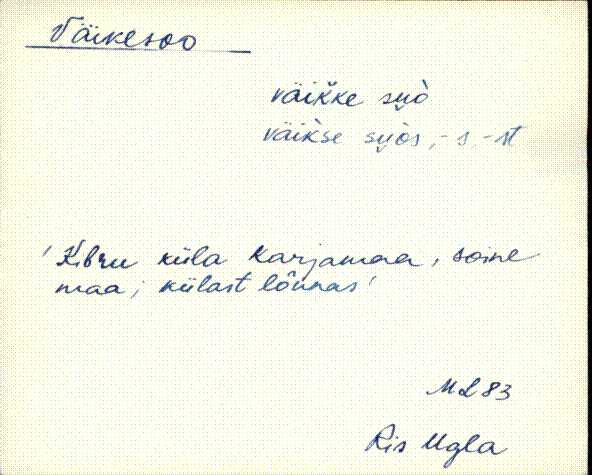 Väikesoo
väikke suo̭
väikse suo̭s, -s, -st
'Kibru küla karjamaa, soine
maa; külast lõunas'
ML 83
Ris Ugla